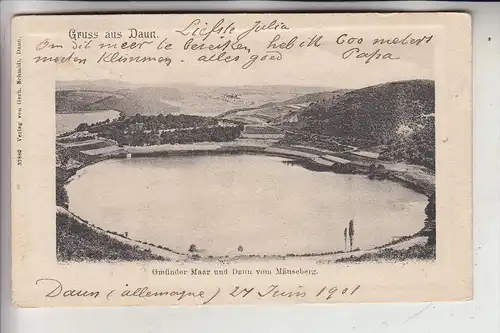 Gruss aus Daun.
Liefste Julia
Om dit meer te bereiken heb ik 600 meters
moeten klimmen. alles goed Papa
37860 Verlag von Gerh. Schmidt, Daun.
Gmünder Maar und Daun vom Mäuseberg.
Daun (allemagne) 27 Juin 1901